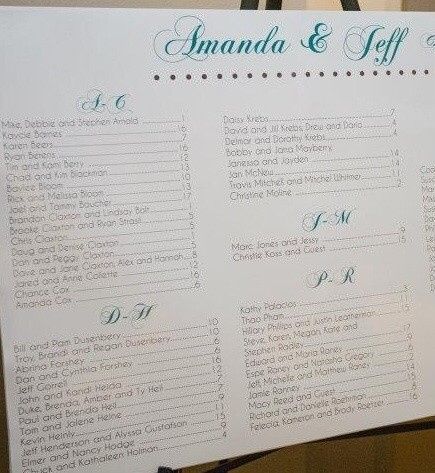 Amanda & Jeff
A-C
Mike, Debbie and Stephen Arnold 1
Kaycie Barnes 16
Karen Beers 7
Ryan Berens 16
Tim and Kami Berry 12
Chad and Kim Blackman 13
Baylee Bloom 13
Rick and Melissa Bloom 13
Joel and Tammy Baucher 17
Brandon Claxton and Lindsay Bolt 1
Brooke Claxton and Ryan Strasil 5
Chris Claxton 5
Doug and Denise Claxton 5
Don and Peggy Claxton 5
Dave and Jane Claxton, Alex and Hannah 8
Jared and Anne Collette 12
Chance Cox 16
Amanda Cox 6
D-H
Bill and Pam Dusenbery 10
Troy, Brandi and Regan Dusenbery 10
Abrina Forshey 6
Dan and Cynthia Forshey 6
Jeff Gorrell 12
John and Kandi Heida 7
Duke, Brenda, Amber and Ty Heil 7
Paul and Brenda Heil 9
Tom and Jolene Heine 11
Kevin Heinly 15
Jeff Henderson and Alyssa Gustafson 9
Elmer and Nancy Hodge 9
Chuck and Kathaleen Holman 4
Daisy Krebs 7
David and Jill Krebs, Drew and Daria 4
Delmar and Dorothy Krebs 4
Bobby and Jana Mayberry,
Janessa and Jayden 14
Jan McNew 14
Travis Mitchell and Mitchel Whitmer 11
Christine Moline 2
J-M
Marc Jones and Jessy 9
Christie Koss and Guest 15
P-R
Kathy Palacios 3
Thao Pham
Hillary Phillips and Justin Leatherman
Steve, Karen, Megan, Katie and
Stephen Radley 17
Edward and Maria Raney 9
Espie Raney and Natasha Gregory 2
Jeff, Michelle and Matthew Raney 2
Jamie Ranney 14
Macy Reed and Guest
Richard and Darvelle Roehman
Felecia, Kameron and Brody Roetzel 16